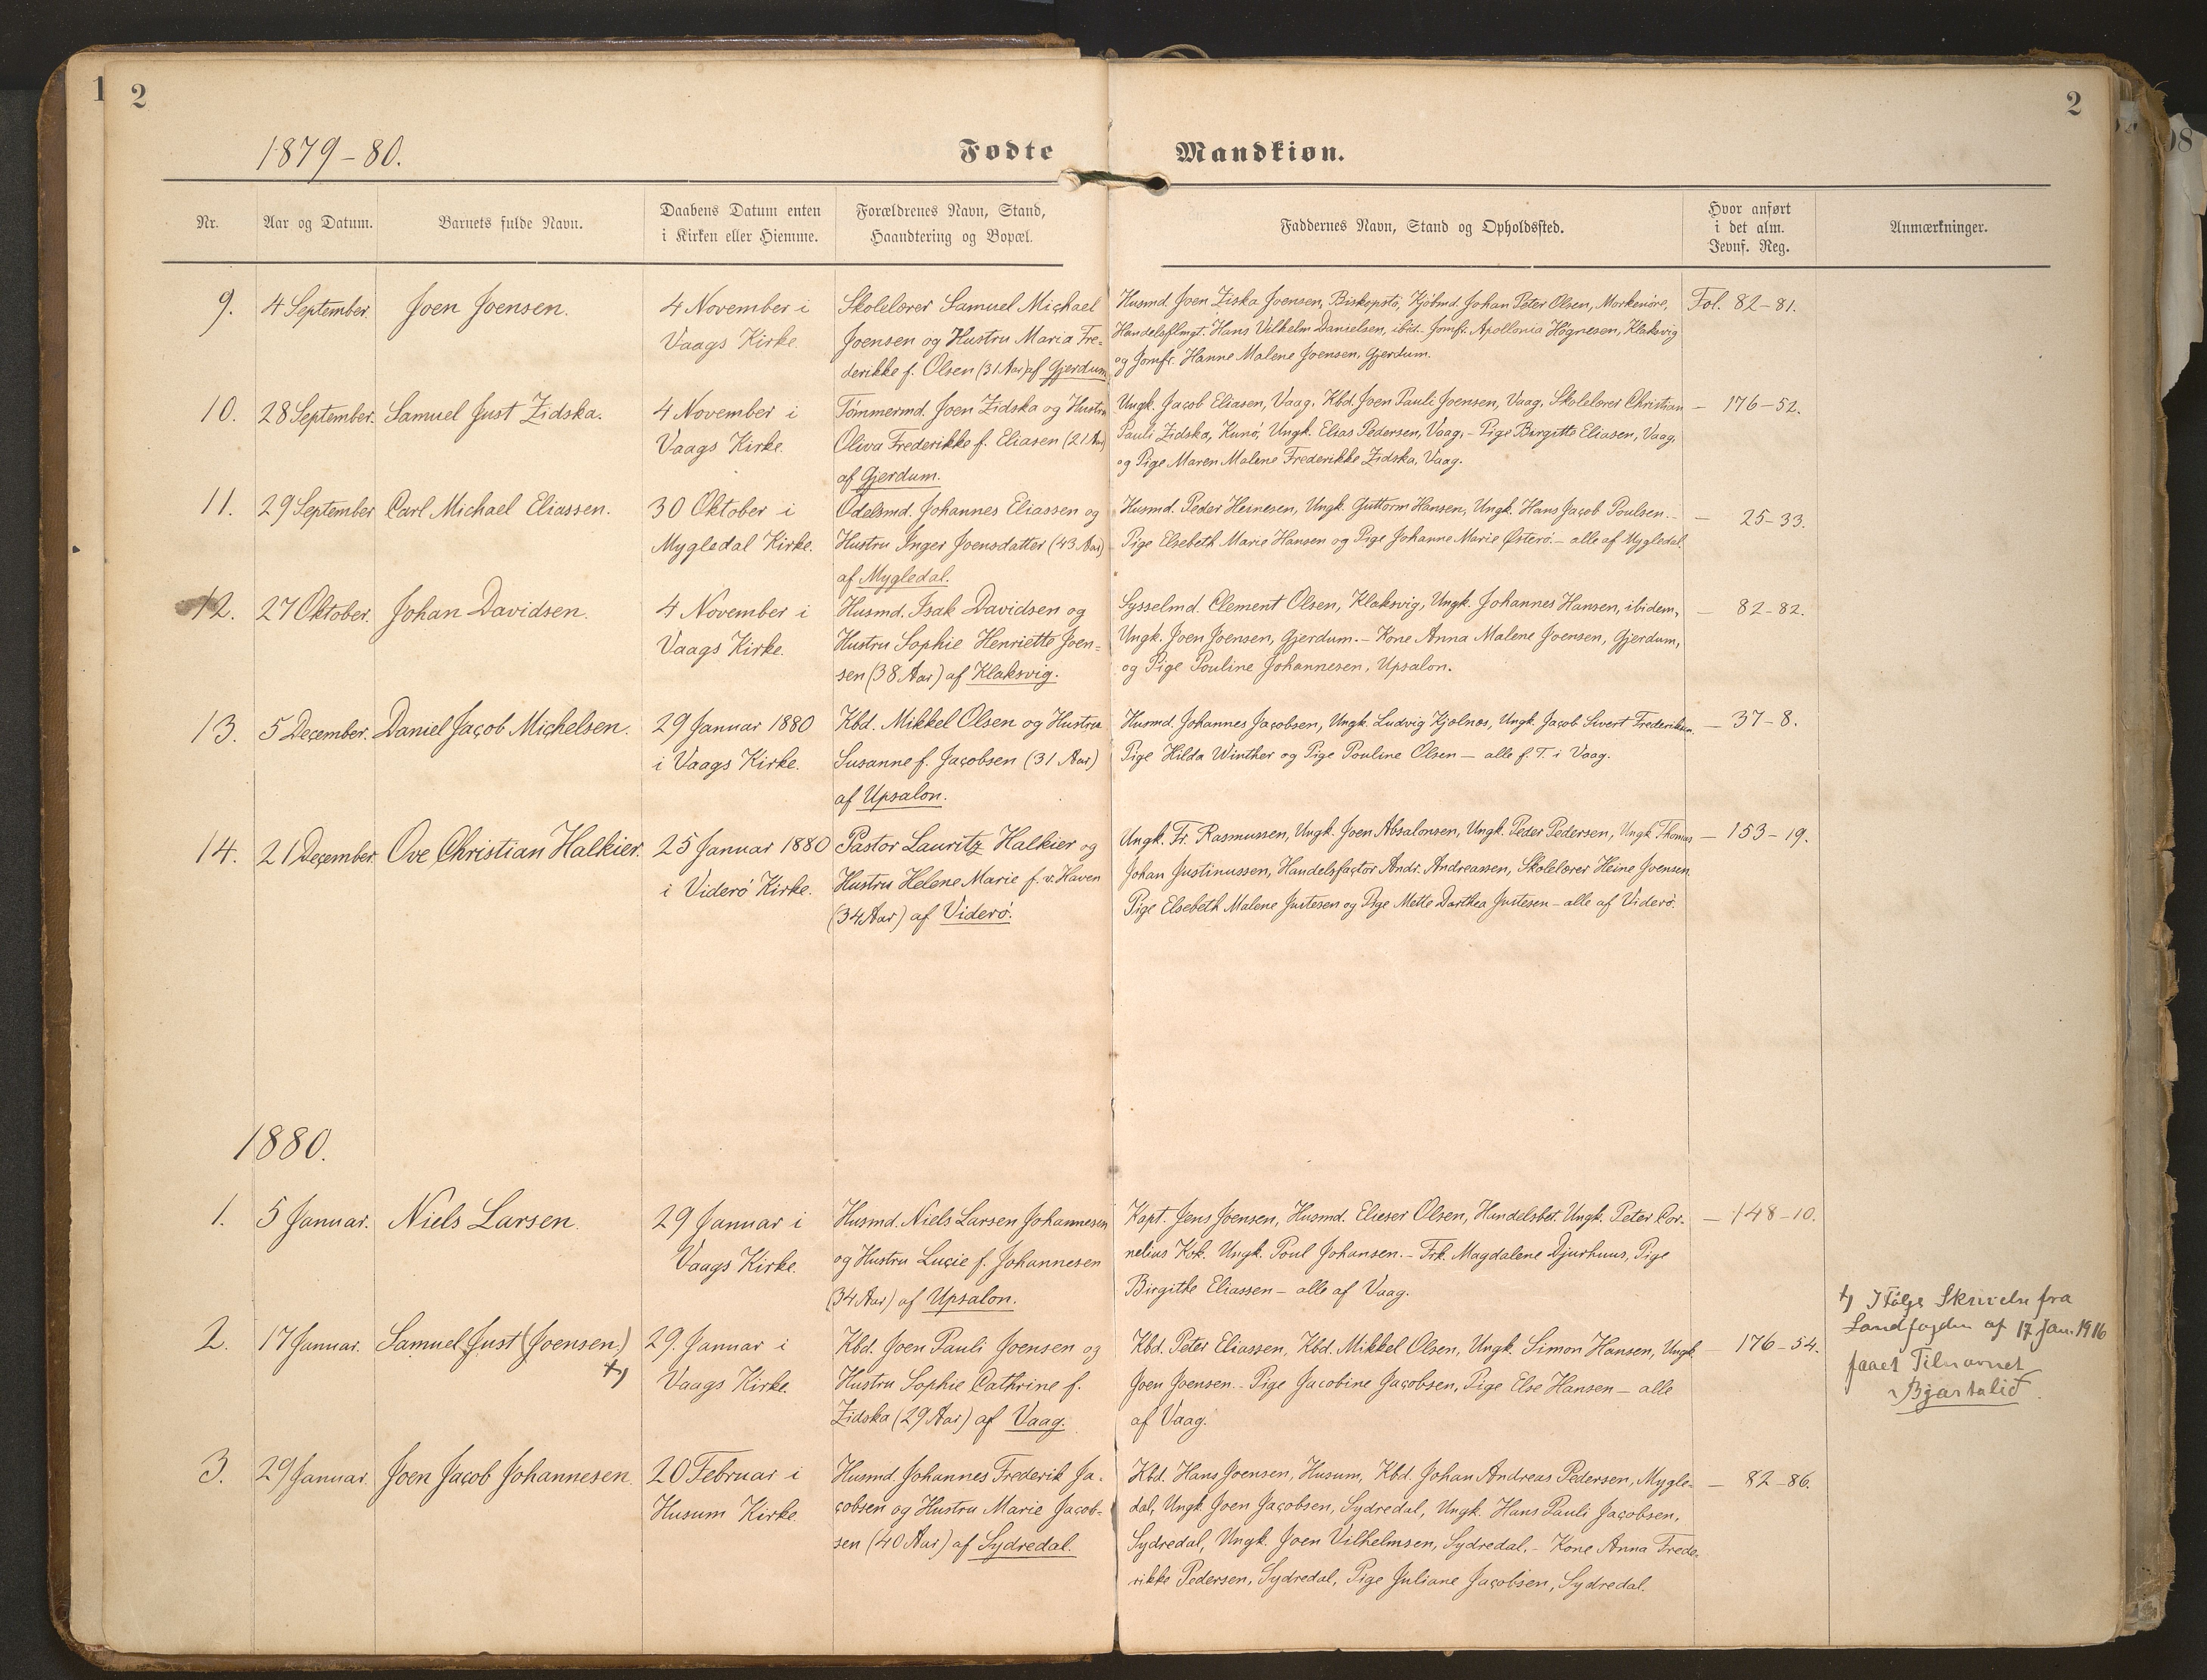 1
2
2
1879-80.
Fødte
Mandkiøn.
Nr.
Aar og Datum.
Barnets fulde Navn.
Daabens Datum enten
i Kirken eller Hiemme.
Forældrenes Navn, Stand,
Haandtering og Bopæl.
Faddernes Navn, Stand og Opholdssted.
Hvor anført
i det alm.
Jevnf. Reg.
Anmærkninger.
9.
4 September.
Joen Joensen.
4 November i
Vaags Kirke.
Skolelærer Samuel Michael
Joensen og Hustru Maria Fre-
derikke f. Olsen (31 Aar) af Gjerdum
Husmd. Joen Ziska Joensen, Biskopstö, Kjöbmd. Johan Peter Olsen, Morkeöre,
Handelsflmgt. Hans Vilhelm Danielsen, ibid.- Jomfr. Apollonia Högnesen, Klaksvig
og Jomfr. Hanne Malene Joensen, Gjerdum.
Fol. 82-81.
10.
28 September.
Samuel Just Zidska.
4 November i
Vaags Kirke.
Tömmermd. Joen Zidska og Hustru
Oliva Frederikke f. Eliasen (21 Aar)
af Gjerdum.
Ungk. Jacob Eliasen, Vaag, Kbd. Joen Pauli Joensen, Vaag, Skolelærer Christian
Pauli Zidska, Kunö, Ungk. Elias Pedersen, Vaag,- Pige Birgitte Eliasen, Vaag,
og Pige Maren Malene Frederikke Zidska, Vaag.
- 176-52.
11.
29 September
Carl Michael Eliassen.
30 Oktober i
Mygledal Kirke.
Odelsmd. Johannes Eliassen og
Hustru Inger Joensdatter (43 Aar)
af Mygledal.
Husmd. Peder Heinesen, Ungk. Guttorm Hansen, Ungk. Hans Jacob Poulsen.-
Pige Elsebeth Marie Hansen og Pige Johanne Marie Østerö.- alle af Mygledal.
- 25-33.
12.
27 Oktober.
Johan Davidsen.
4 November i
Vaags Kirke.
Husmd. Isak Davidsen og
Hustru Sophie Henriette Joen-
sen (38 Aar) af Klaksvig.
Sysselmd. Clement Olsen, Klaksvig, Ungk. Johannes Hansen, ibidem,
Ungk. Joen Joensen, Gjerdum.- Kone Anna Malene Joensen, Gjerdum,
og Pige Pouline Johannesen, Upsalon.
- 82-82.
13.
5 December.
Daniel Jacob Michelsen.
29 Januar 1880
i Vaags Kirke.
Kbd. Mikkel Olsen og Hustru
Susanne f. Jacobsen (31 Aar)
af Upsalon.
Husmd. Johannes Jacobsen, Ungk. Ludvig Kjølnes, Ungk. Jacob Sivert Frederiksen.
Pige Hilda Winther og Pige Pouline Olsen - alle f. T. i Vaag.
- 37-8.
14.
21 December.
Ove Christian Halkier.
25 Januar 1880
i Viderö Kirke.
Pastor Lauritz Halkier og
Hustru Helene Marie f. v. Haven
(34 Aar) af Viderö.
Ungk. Fr. Rasmussen, Ungk. Joen Absalonsen, Ungk. Peder Pedersen, Ungk Thomas
Johan Justinussen, Handelsfactor Andr. Andreassen, Skolelærer Heine Joensen
Pige Elsebeth Malene Justesen og Pige Mette Dorthea Justesen - alle af Viderö.
- 153-19.
1880.
1.
5 Januar.
Niels Larsen.
29 Januar i
Vaags Kirke.
Husmd. Niels Larsen Johannesen
og Hustru Lucie f. Johannesen
(34 Aar) af Upsalon.
Kapt. Jens Joensen, Husmd. Elieser Olsen, Handelsbet. Ungk. Peter Cor-
nelius Kok. Ungk. Poul Johansen.- Frk. Magdalene Djurhuus, Pige
Birgitte Eliassen - alle af Vaag.
- 148-10.
2.
17 Januar.
Samuel Just (Joensen)
+)
29. Januar i
Vaags Kirke.
Kbd. Joen Pauli Joensen og
Hustru Sophie Cathrine f.
Zidska (29 Aar) af Vaag.
Kbd. Peter Eliassen, Kbd. Mikkel Olsen, Ungk. Simon Hansen, Ungk
Joen Joensen.- Pige Jacobine Jacobsen, Pige Else Hansen - alle
af Vaag.
- 176-54.
+) Ifölge Skrivelse fra
Landfogden af 17 Jan. 1916
faaet Tilnavnet
Bjartalið.
3.
29 Januar.
Joen Jacob Johannesen
20 Februar i
Husum Kirke.
Husmd. Johannes Frederik Ja-
cobsen og Hustru Marie Jacob-
sen (40 Aar) af Sydredal.
Kbd. Hans Joensen, Husum, Kbd. Johan Andreas Pedersen, Mygle-
dal, Ungk. Joen Jacobsen, Sydredal, Ungk. Hans Pauli Jacobsen,
Sydredal, Ungk. Joen Vilhelmsen, Sydredal.- Kone Anna Frede-
rikke Pedersen, Sydredal, Pige Juliane Jacobsen, Sydredal.
- 82-86.